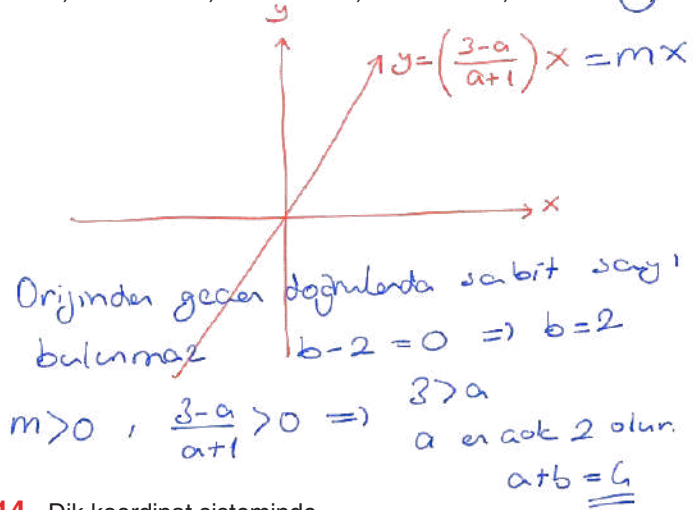 y
y=(3-a/a+1)x =mx
x
Orijinden geçen doğrularda sabit sayı
bulunmaz b-2=0 => b=2
m>0, 3-a/a+1 >0 => 3>a
a en çok 2 olur.
a+b=4
14. Dik koordinat sisteminde